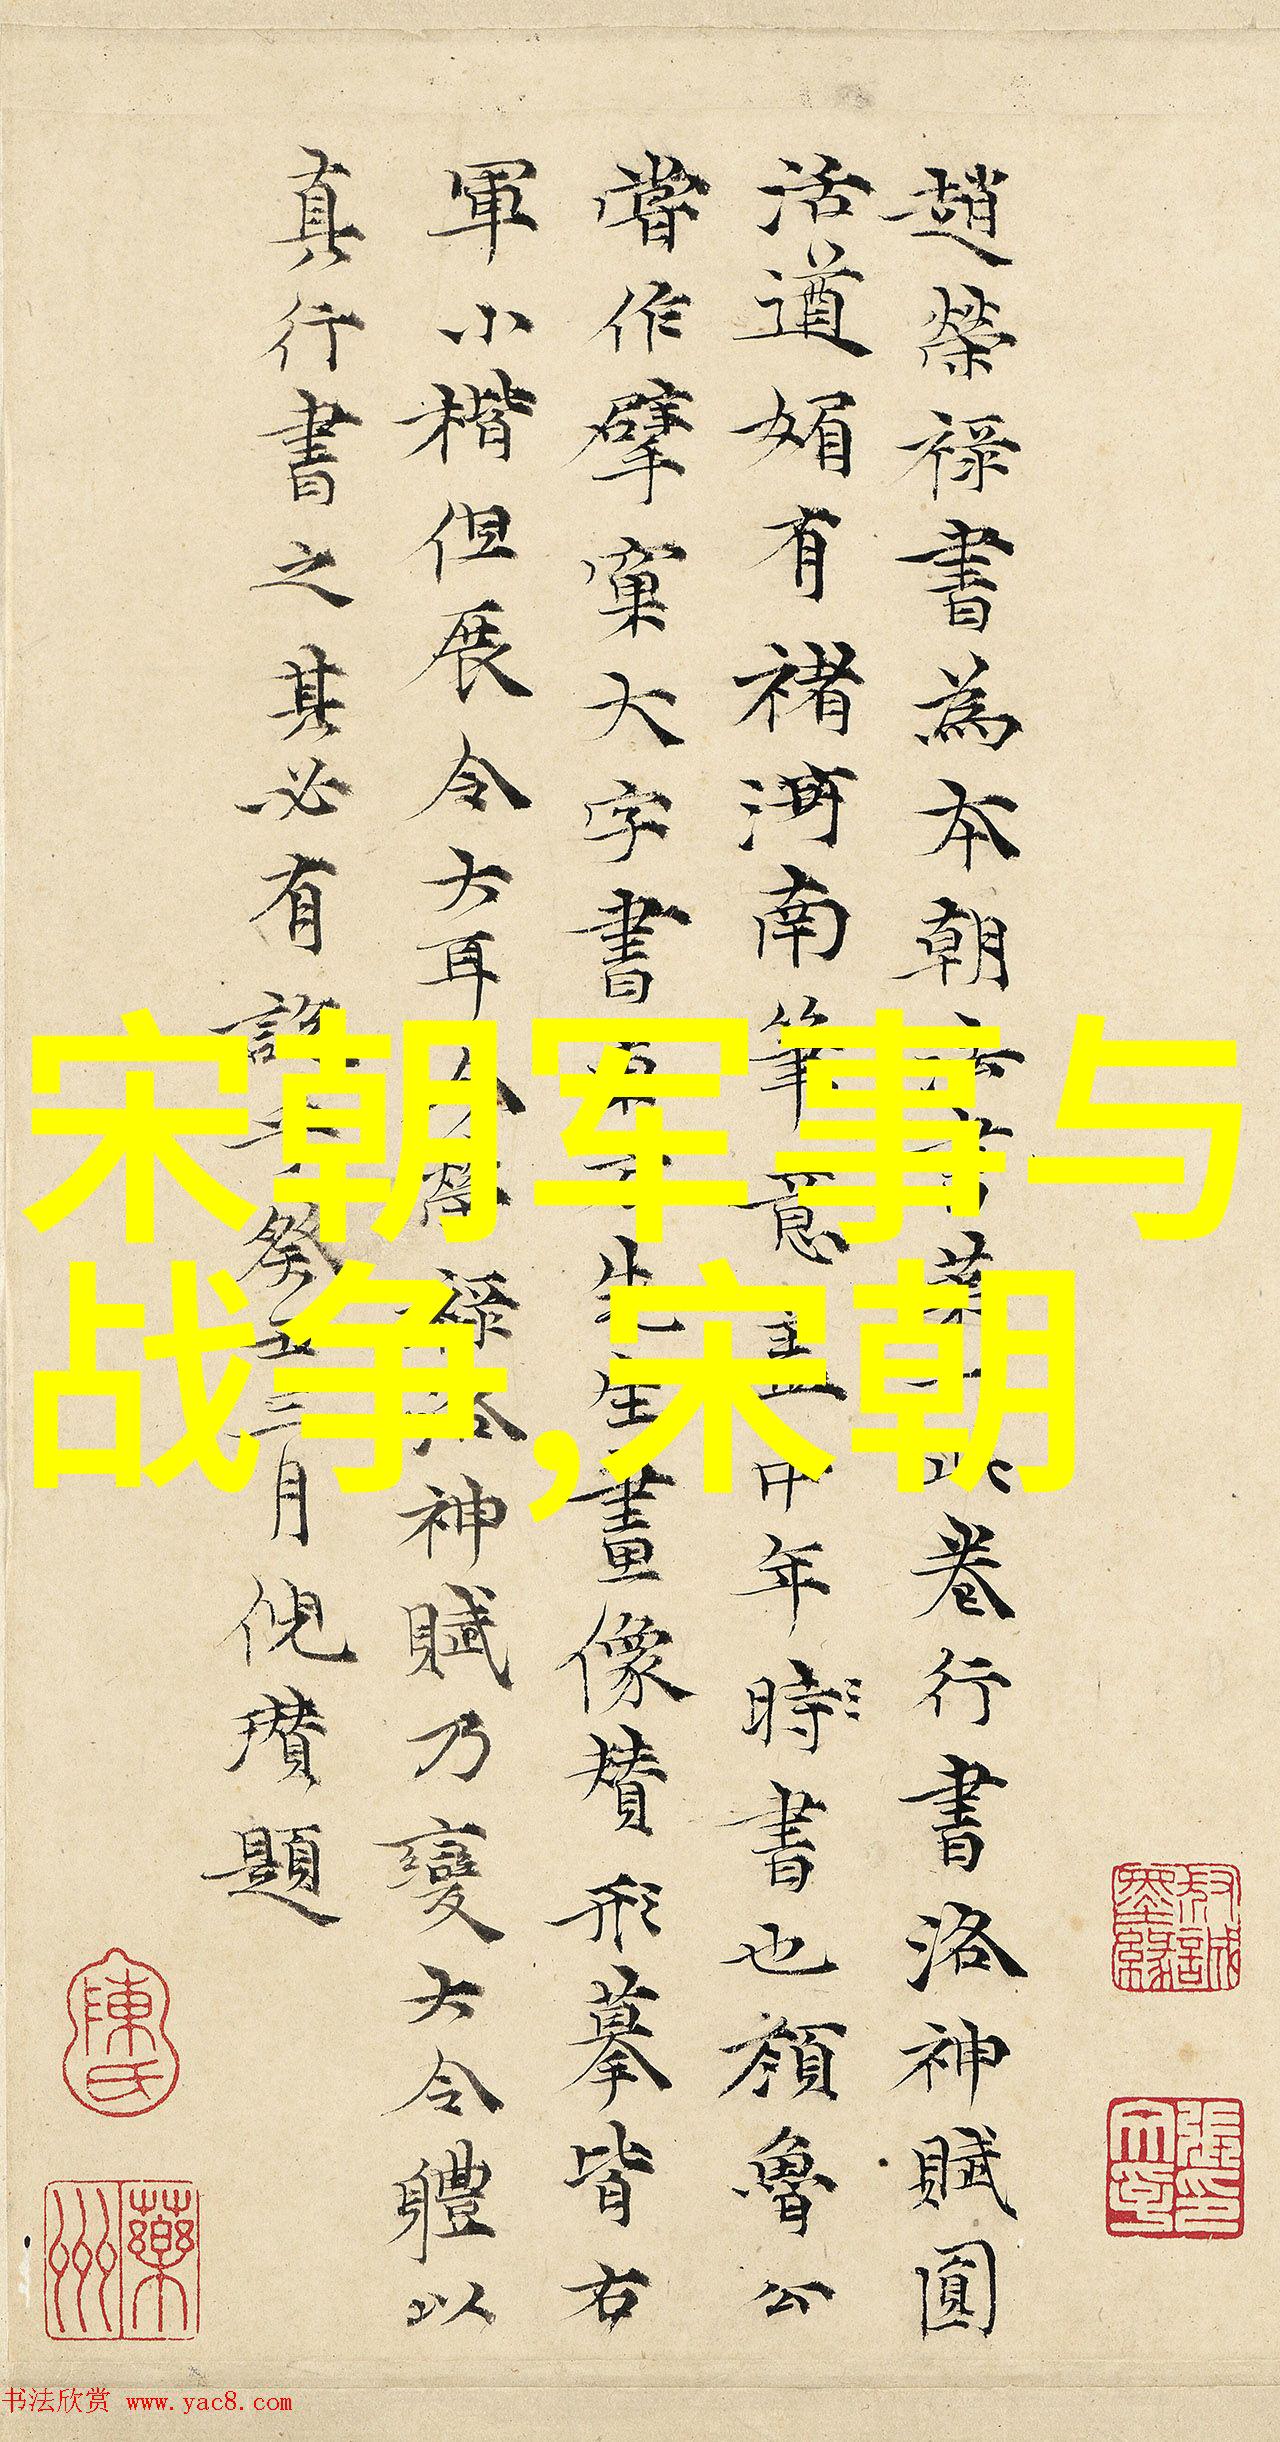 趙榮祿書為本朝
卷行書洛神賦圓
活遒媚有褚河南筆意
中年時書也顏魯公
嘗作擘窠大字書
先生畫像贊形摹皆右
軍小楷但展令大耳
祿
神賦乃變大令體以
真行書之其必有
癸丑三月倪瓚題
宋朝军事与
战争,宋朝
陳氏
藥洲
书法欣赏 www.yac8.com